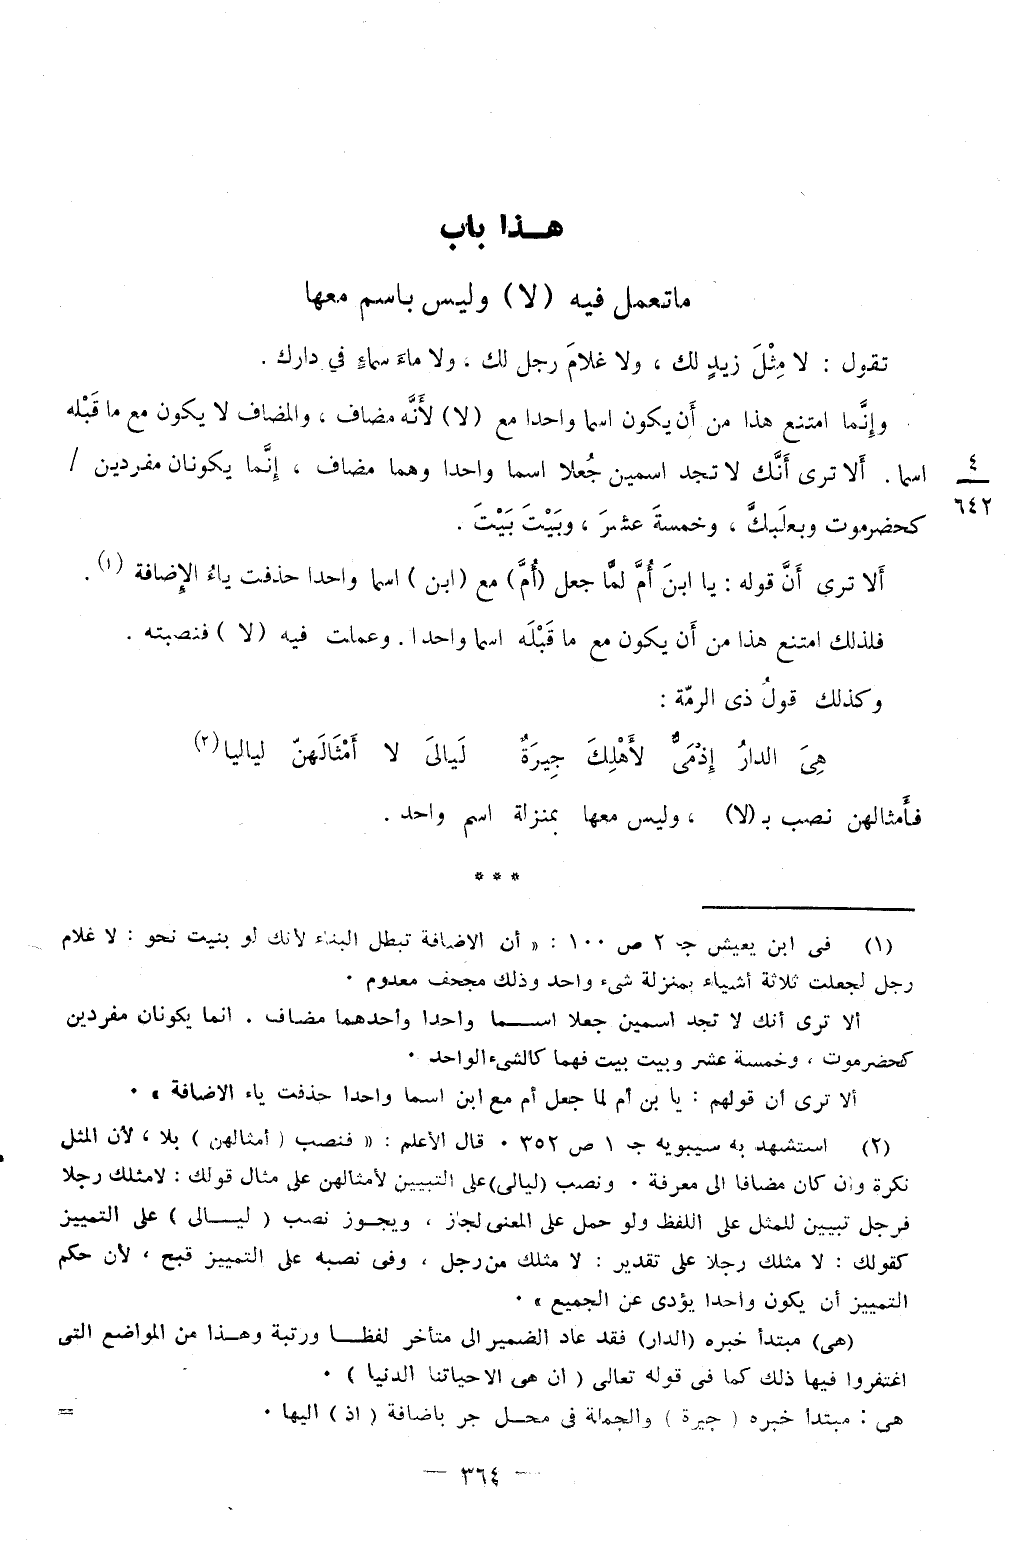 هـذا باب
ماتعمل فيه (لا) وليس باسم معها
تقول : لا مِثْلَ زيدٍ لك ، ولا غلامَ رجل لك ، ولا ماءَ سماءٍ في دارك .
وإنَّما امتنع هذا من أَن يكون اسما واحدا مع (لا) لأَنَّه مضاف ، والمضاف لا يكون مع ما قَبْله
اسما . أَلا ترى أَنَّك لا تجد اسمين جُعلا اسما واحدا وهما مضاف ، إنَّما يكونان مفردين /
٤
٦٤٢
كحضرموت وبعلَبكَّ ، وخمسةَ عشرَ ، وبَيْتَ بَيْتَ .
أَلا ترى أَنَّ قوله : يا ابنَ أُمَّ لمَّا جعل (أُمَّ) مع (ابن) اسما واحدا حذفت ياءُ الإِضافة (١) .
فلذلك امتنع هذا من أَن يكون مع ما قَبْلَه اسما واحدا . وعملت فيه (لا) فنصبته .
وكذلك قولُ ذى الرمّة :
هِىَ الدارُ إِذْمَىٌّ لأَهْلِكَ جِيرَةٌ لَيالىَ لا أَمْثَالَهنّ لياليا(٢)
فأَمثالهن نصب بـ (لا) ، وليس معها بمنزلة اسم واحد .
* * *
(١) فى ابن يعيش جـ ٢ ص ١٠٠ : « أن الاضافة تبطل البناء لأنك لو بنيت نحو : لا غلام
رجل لجعلت ثلاثة أشياء بمنزلة شىء واحد وذلك مجحف معدوم ٠
ألا ترى أنك لا تجد اسمين جعلا اســـما واحدا وأحدهما مضاف . انما يكونان مفردين
كحضرموت ، وخمسة عشر وبيت بيت فهما كالشىء الواحد ٠
ألا ترى أن قولهم : يا بن أم لما جعل أم مع ابن اسما واحدا حذفت ياء الاضافة » ٠
(٢) استشهد به سيبويه جـ ١ ص ٣٥٢ ٠ قال الأعلم : « فنصب ( أمثالهن ) بلا ، لأن المثل
نكرة وان كان مضافا الى معرفة ٠ ونصب (ليالى) على التبيين لأمثالهن على مثال قولك : لامثلك رجلا
فرجل تبيين للمثل على اللفظ ولو حمل على المعنى لجاز ، ويجـوز نصب ( ليـــالى ) على التمييز
كقولك : لا مثلك رجلا على تقدير : لا مثلك من رجل ، وفى نصبه على التمييز قبح ، لأن حكم
التمييز أن يكون واحدا يؤدى عن الجميع » ٠
(هى) مبتدأ خبره (الدار) فقد عاد الضمير الى متأخر لفظـــا ورتبة وهـذا من المواضع التى
اغتفروا فيها ذلك كما فى قوله تعالى ( ان هى الا حياتنا الدنيا ) ٠
هى : مبتدأ خبره ( جيرة ) والجملة فى محـل جر باضافة ( اذ ) اليها ٠ =
— ٣٦٤ —